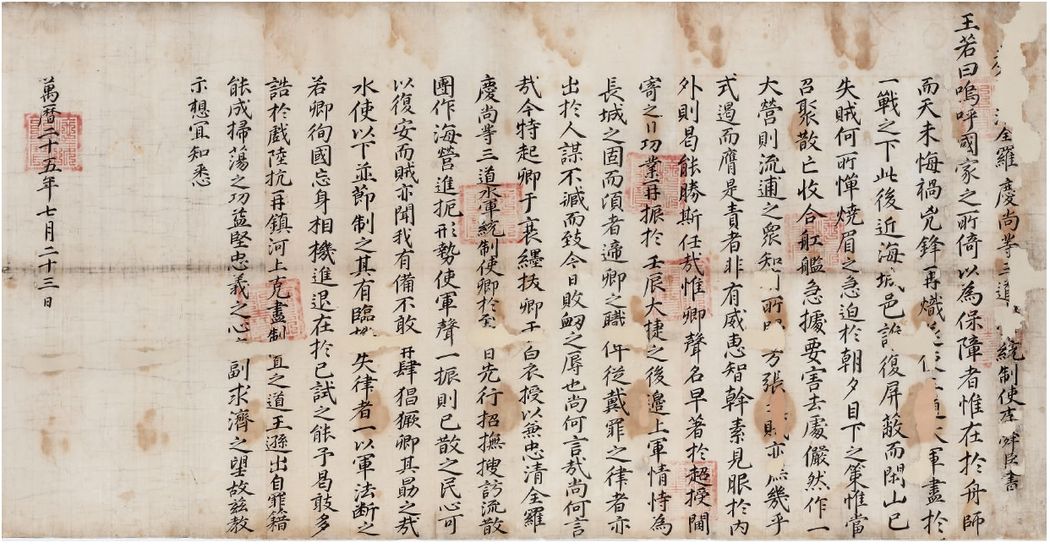 全羅慶尚等三道 統制使 書
王若曰嗚呼國家之所倚以為保障者惟在於舟師
而天未悔禍兇鋒再熾 三道 軍盡於
一戰之下此後近海城邑誰復屏蔽而閑山已
失賊何所憚燒眉之急迫於朝夕目下之策惟當
召聚散亡收合舡艦急據要害去處儼然作一
大營則流逋之眾知 所 方張 賊亦 幾乎
式遏而膺是責者非有威惠智幹素見服於內
外則曷能勝斯任哉惟卿聲名早著於超授閫
寄之日功業再振於壬辰大捷之後邊上軍情恃為
長城之固而頃者遞卿之職 從戴罪之律者亦
出於人謀不臧而致今日敗衂之辱也尚何言哉尚何言
哉今特起卿于衰絰拔卿于白衣授以兼忠清全羅
慶尚等三道水軍統制使卿於 日先行招撫搜訪流散
團作海營進扼形勢使軍聲一振則已散之民心可
以復安而賊亦聞我有備不敢再肆猖獗卿其勗之哉
水使以下並節制之其有臨 失律者一以軍法斷之
若卿徇國忘身相機進退在於已試之能予曷敢多
誥於戲陸抗再鎮河上克盡制 之道王遜出自罪籍
能成掃蕩之功益堅忠義之心 副求濟之望故茲教
示想宜知悉
萬曆二十五年七月二十三日